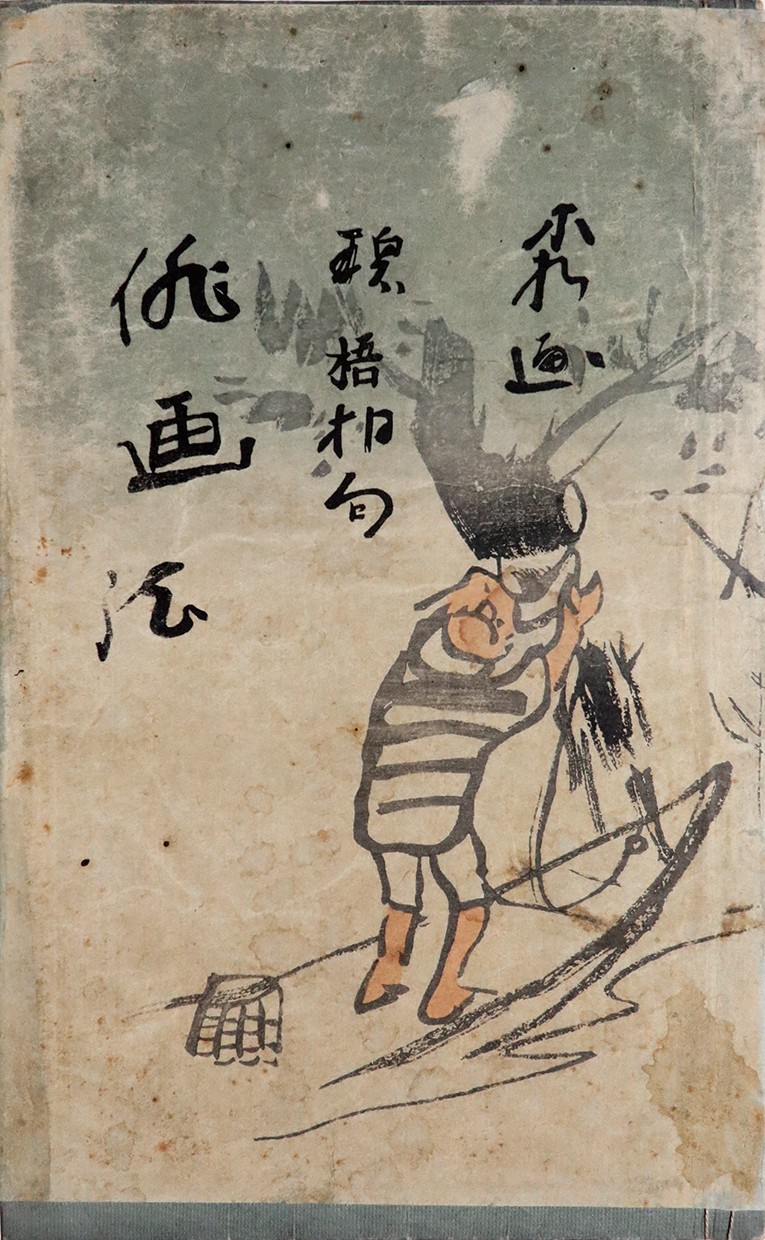 不折画
碧梧桐句
俳画法